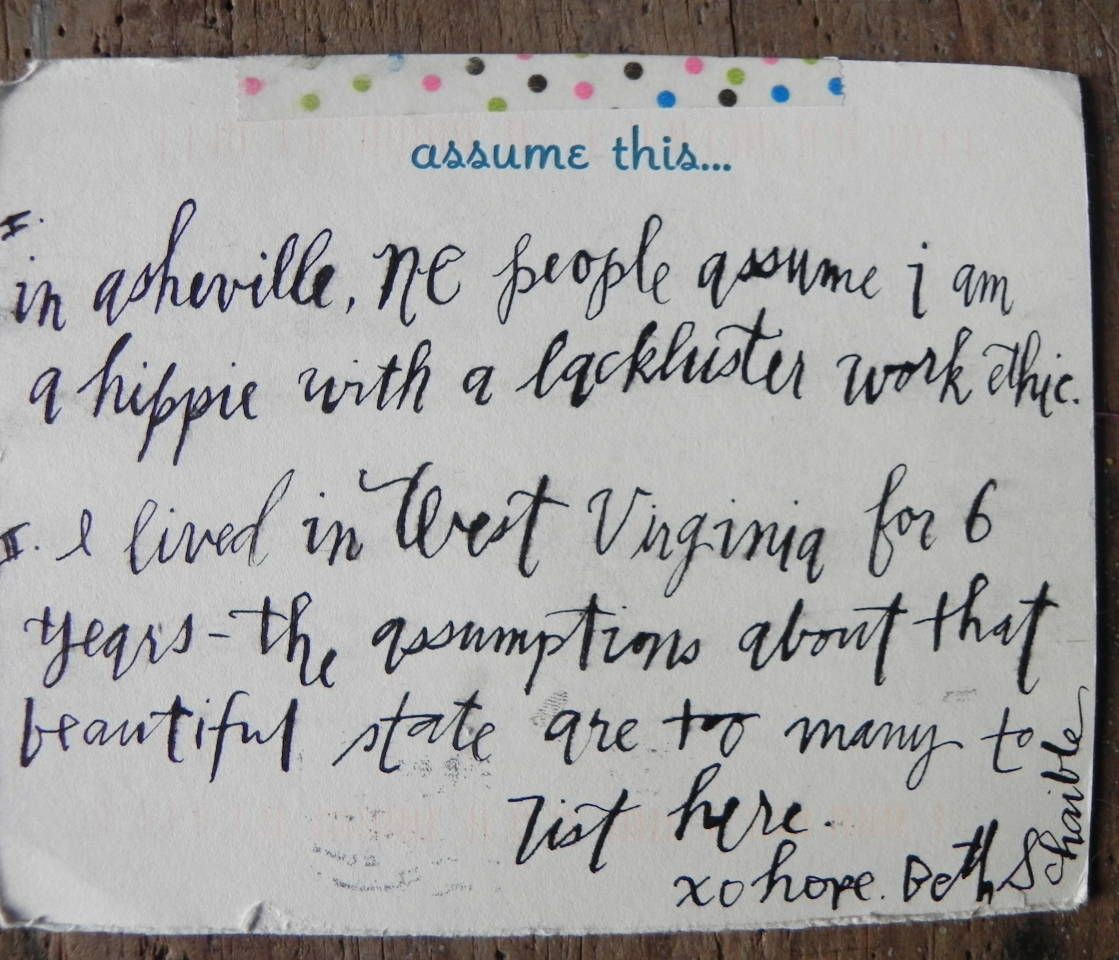 assume this...
I.
in asheville, NC people assume i am
a hippie with a lackluster work ethic.
II. I lived in West Virginia for 6
years - the assumptions about that
beautiful state are too many to
list here.
xo hope. Beth Schaible